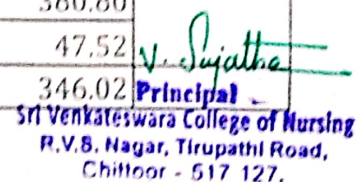 380.80
47.52 V. Sujatha
346.02 Principal
Sri Venkateswara College of Nursing
R.V.S. Nagar, Tirupathi Road,
Chittoor - 517 127.